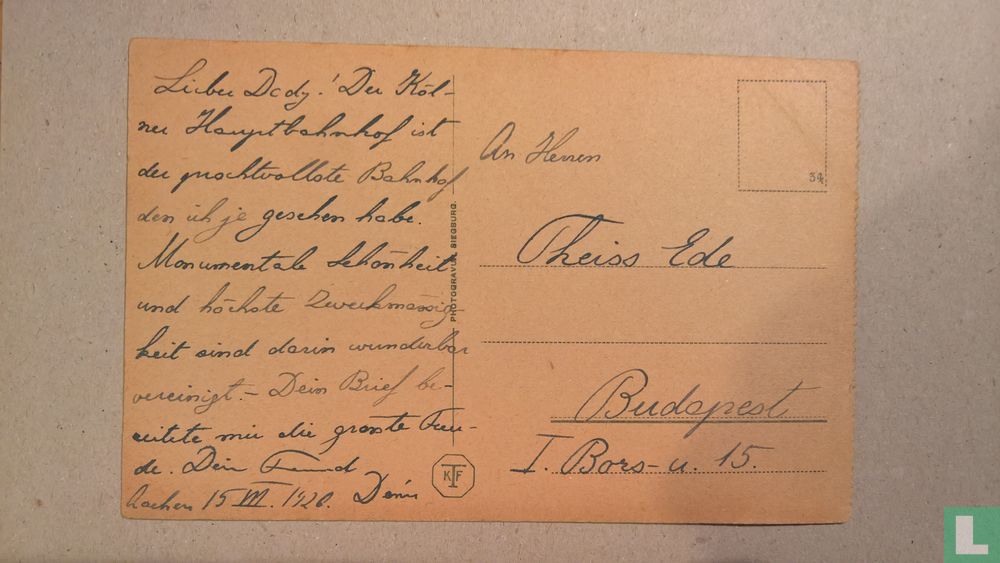 Lieber Dody! Der Köl-
ner Hauptbahnhof ist
der prachtvollste Bahnhof
den ich je gesehen habe.
Monumentale Schönheit
und höchste Zweckmässig-
keit sind darin wunderbar
vereinigt. – Dein Brief be-
reitete mir die grösste Freu-
de. Dein Freund
Aachen 15 VIII. 1926.
PHOTOGRAVUR SIEGBURG.
K T F
34
An Herren
Theiss Ede
Budapest
I. Bors-u. 15.
L